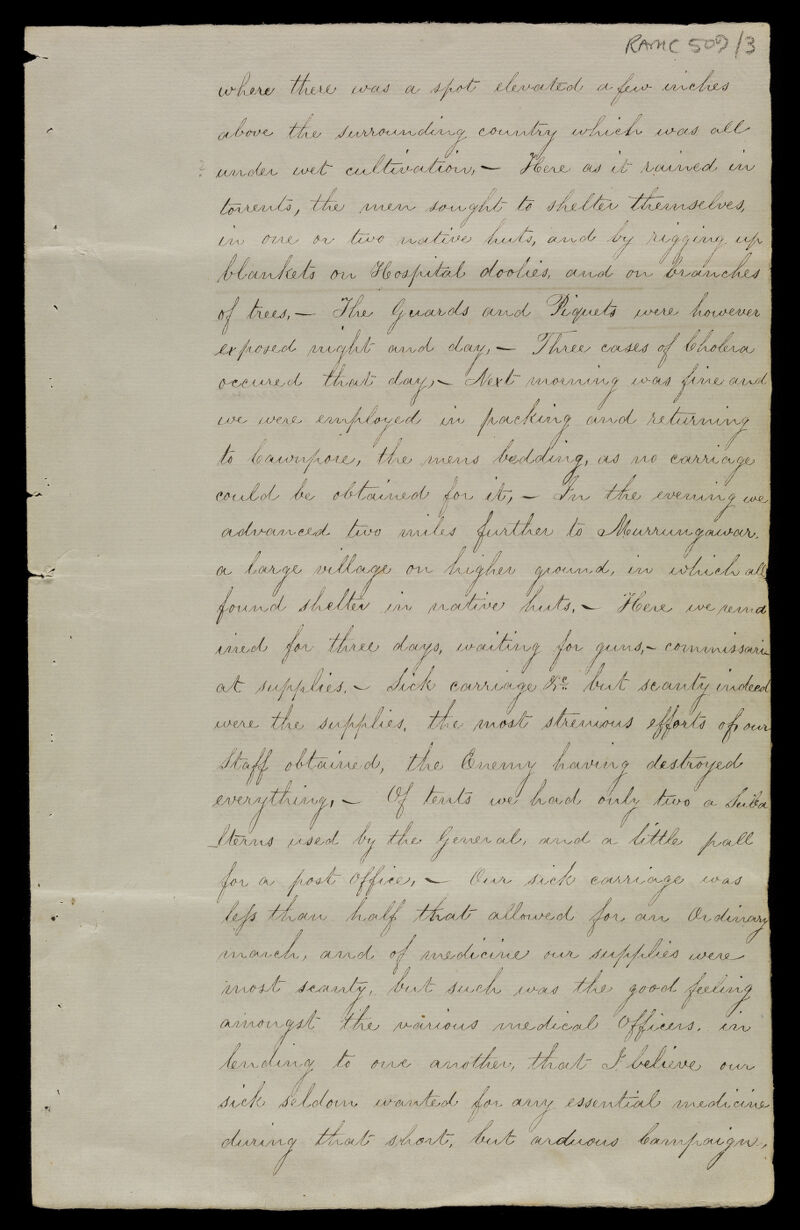 RAMC 509/3
where there was a spot elevated a few inches
above the surrounding country which was all
under wet cultivation, — Here as it rained in
torrents, the men sought to shelter themselves,
in one or two native huts, and by rigging up
blankets on Hospital doolies, and on branches
of trees, — The Guards and Piquets were however
exposed night and day, — Three cases of Cholera
occured that day, — Next morning was fine and
we were employed in packing and returning
to Cawnpore, the mens bedding, as no carriage
could be obtained for it, — In the evening we
advanced two miles further to Murrungawar,
a large village on higher ground, in which all
found shelter in native huts, — Here we rema
ined for three days, waiting for guns, — commissari-
at supplies, — Sick carriage &c. but scanty indeed
were the supplies, the most strenious efforts of our
Staff obtained, the Enemy having destroyed
everything, — Of tents we had only two a Suba
-lterns used by the General, and a little pall
for a post office, — Our sick carriage was
less than half that allowed for an Ordinary
march, and of medicine our supplies were
most scanty, but such was the good feeling
amongst the various medical Officers, in
lending to one another, that I believe our
sick seldom wanted for any essential medicine
during that short, but arduous Campaign,